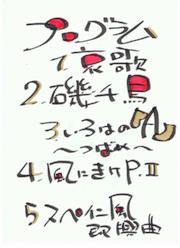 プログラム
1.哀歌
2.磯千鳥
3.いろはの「A」
〜つばめ〜
4.風にきけP.II
5.スペイン風
即興曲